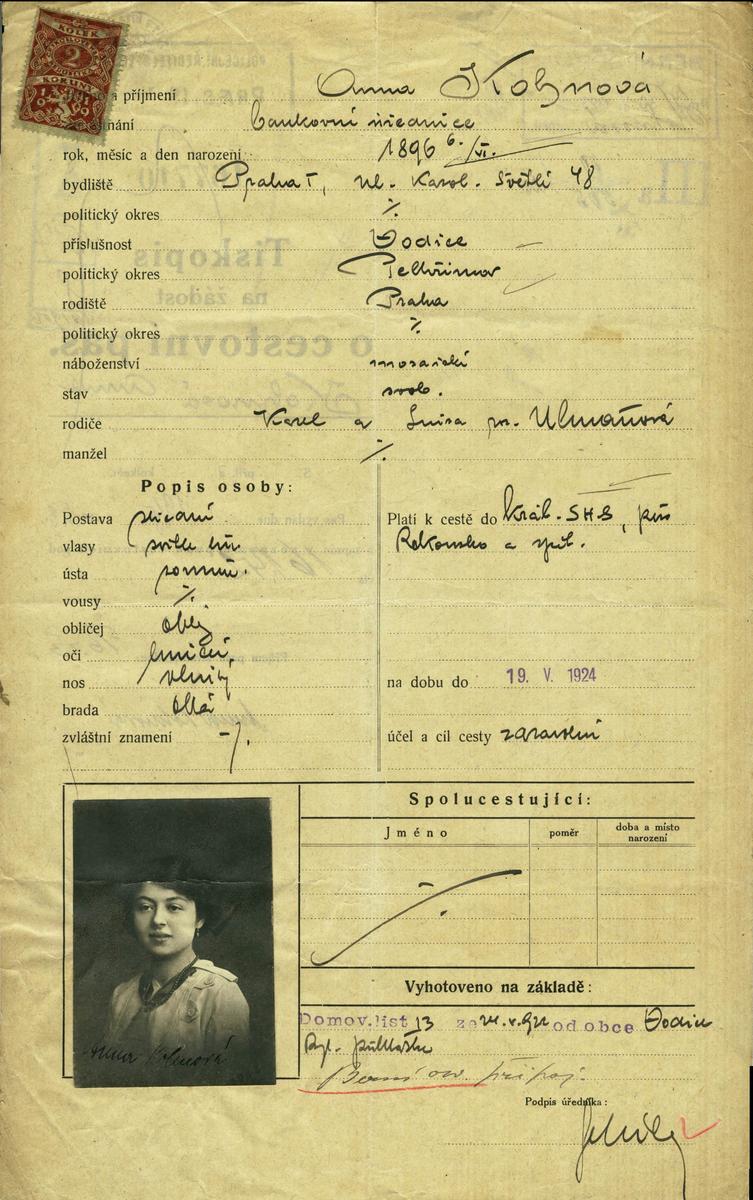 KOLEK
2
KORUNY
a příjmení Anna Kohnová
bankovní úřednice
rok, měsíc a den narození 1896 6./VI.
bydliště Praha I, ul. Karol. Světlé 48
politický okres ./.
příslušnost Vodice
politický okres Pelhřimov
rodiště Praha
politický okres ./.
náboženství mosaické
stav svob.
rodiče Karel a Luisa roz. Ulmanová
manžel ./.
Popis osoby:
Postava střední
vlasy světle hn.
ústa souměr.
vousy ./.
obličej oblý
oči
nos
brada oblá
zvláštní znamení -/.
Platí k cestě do Král. SHS, přes
Rakousko a zpět.
na dobu do 19. V. 1924
účel a cíl cesty zdravotní
Spolucestující:
Jméno poměr doba a místo
narození
Vyhotoveno na základě:
Domov. list 13 ze 24.V.922 od obce Vodice
Pol. přihlášky
připoj.
Podpis úředníka:
Anna Kohnová